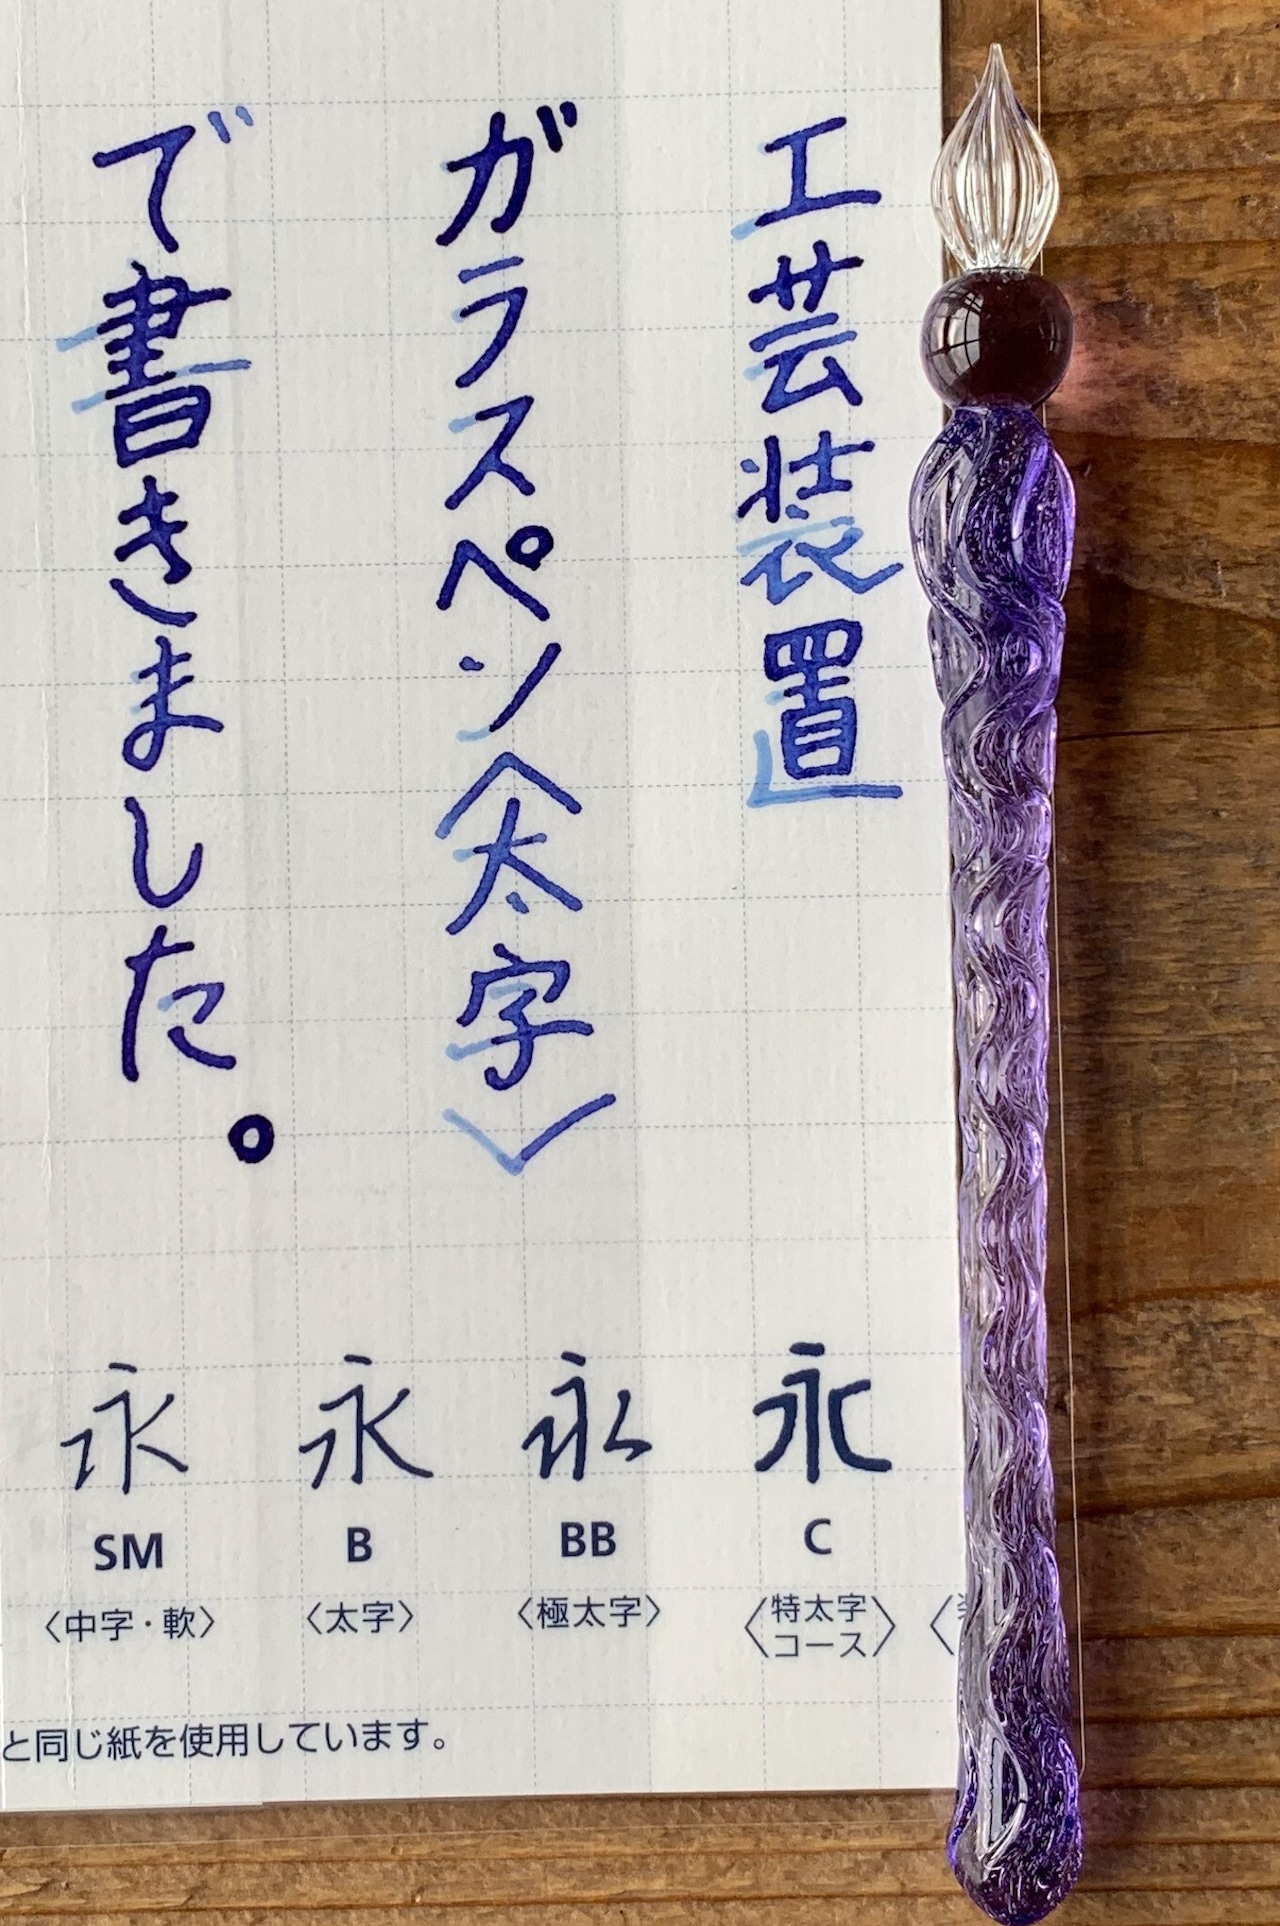 工芸装置
ガラスペン〈太字〉
で書きました。
永 永 永 永
SM B BB C
〈中字・軟〉 〈太字〉 〈極太字〉 〈特太字コース〉
と同じ紙を使用しています。